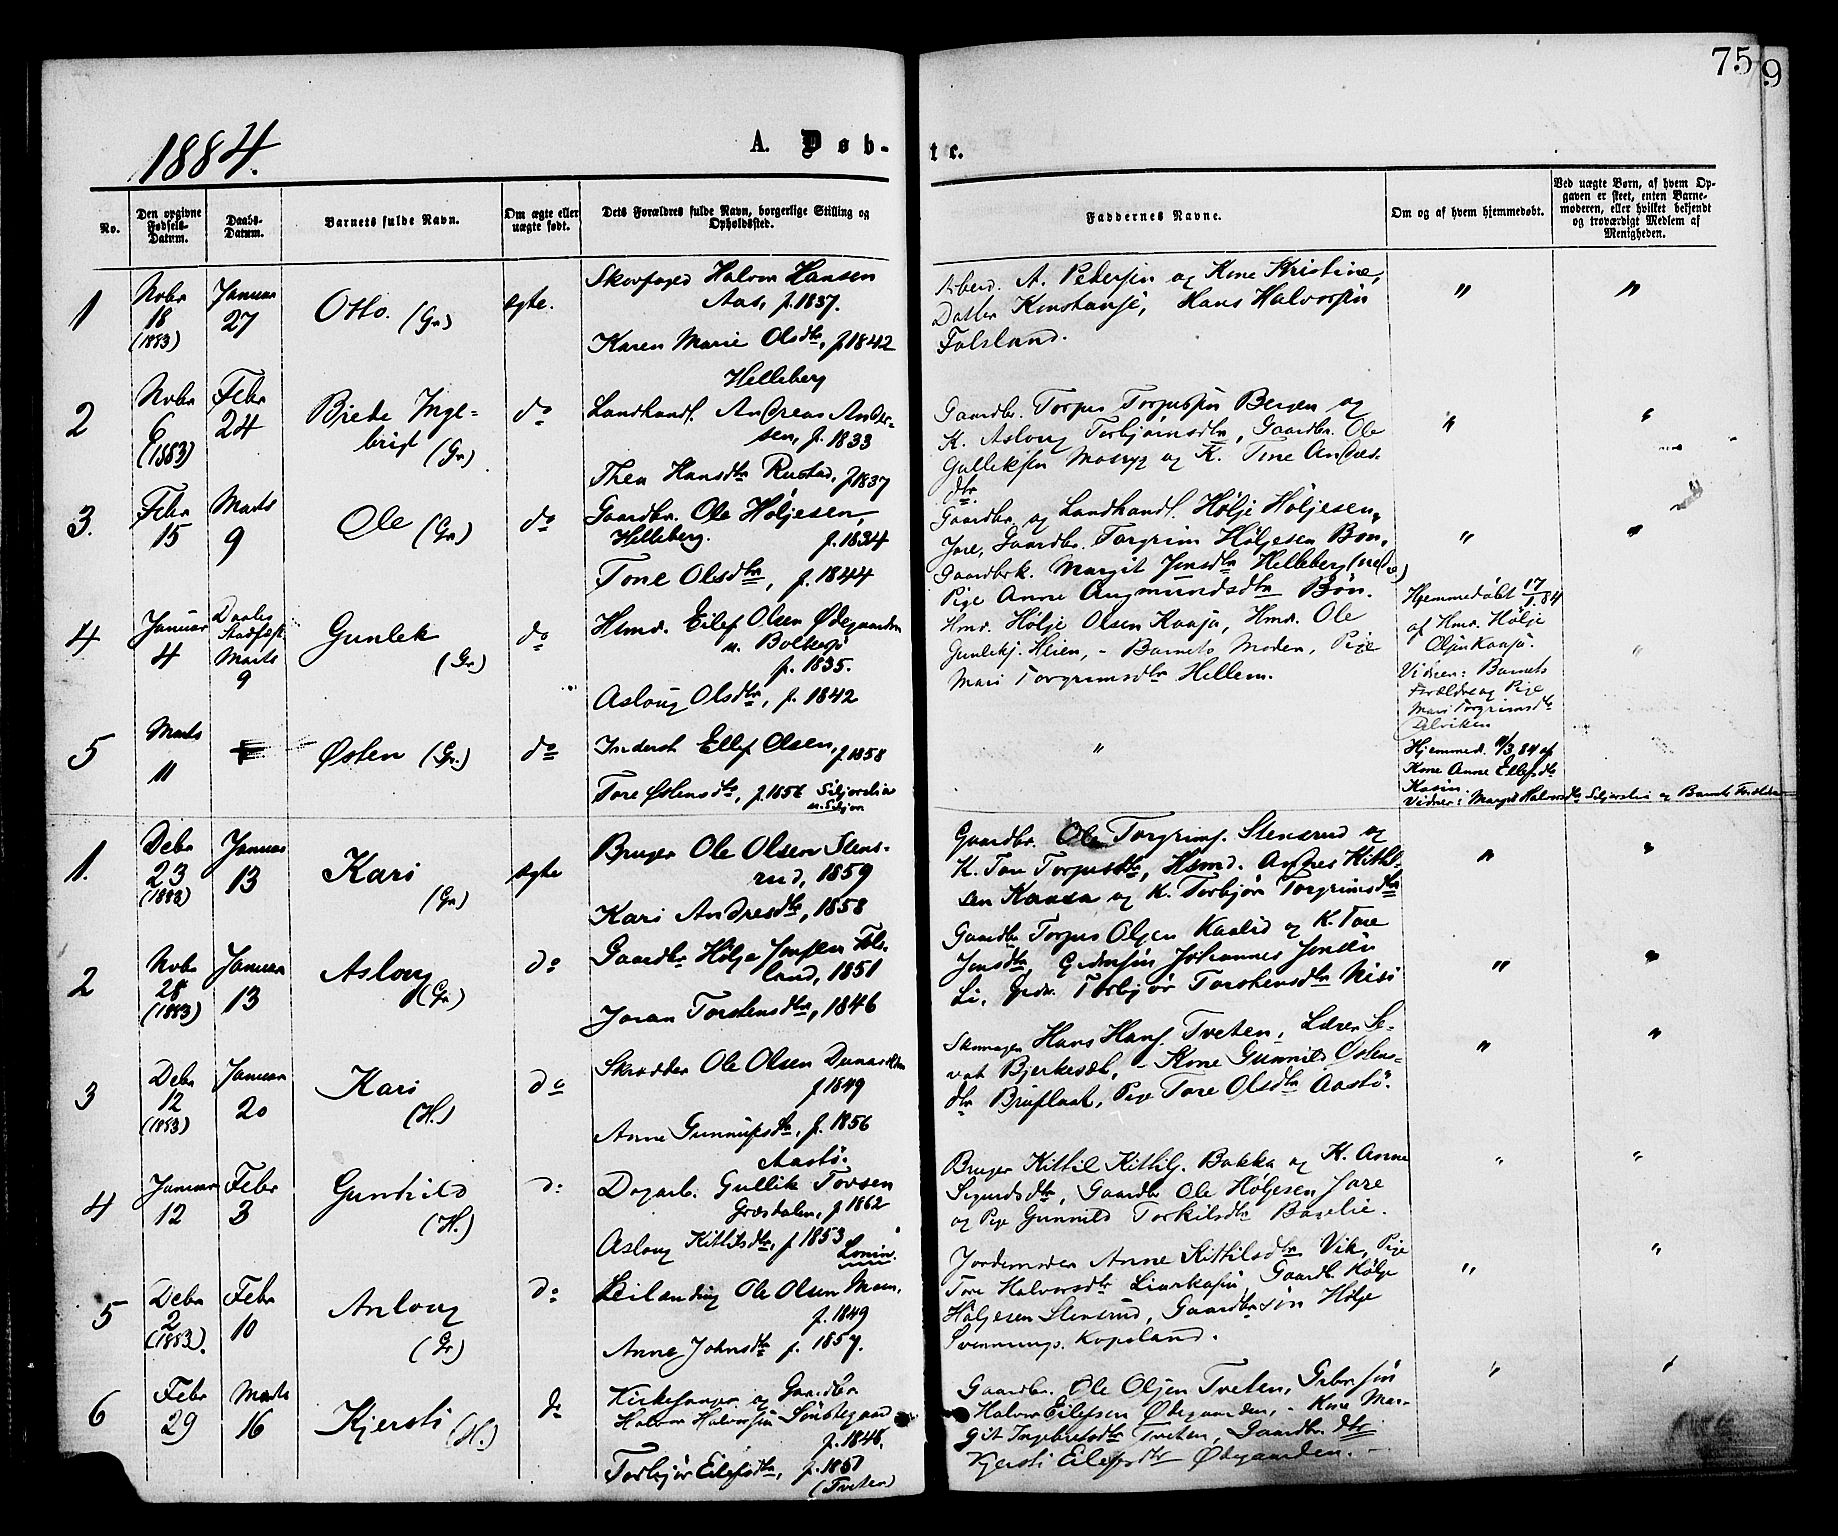 75
9
1884.
A. Døb-
te.
No.
Den opgivne Fødsels-Datum.
Daabs-Datum.
Barnets fulde Navn.
Om ægte eller uægte født.
Dets Forældres fulde Navn, borgerlige Stilling og Opholdssted.
Faddernes Navne.
Om og af hvem hjemmedøbt.
Ved uægte Børn, af hvem Opgaven er skeet, enten Barnemoderen, eller hvilket bekjendt og troværdigt Medlem af Menigheden.
1
Novbr 18 (1883)
Januar 27
Otto. (Gr)
ægte.
Skovfoged Halvor Hansen
Aas, f. 1837.
Karen Marie Olsdtr, f 1842
A. Pedersen og Kone Kristine,
Datter Konstanse, Hans Halvorsen
Folsland.
"
"
2
Novbr 6 (1883)
Febr 24
Brede Inge-
brigt (Gr)
do
Helleberg
Landhandl. Andreas Ander-
sen, f. 1833
Thea Hansdtr Rustad, f 1837
Gaardbr. Torjus Torjussen Bergen og
K. Asloug Torbjørnsdtr, Gaardbr. Ole
Gulliksen Moen og K. Tine Andreas-
dtr.
"
"
3.
Febr 15
Marts 9
Ole (Gr)
do
Gaardbr. Ole Høljesen,
Helleberg. f. 1834
Tone Olsdtr, f. 1844
Gaardbr. og Landhandl. Hølje Høljesen,
Jore, Gaardbr. Torgrim Høljesen Bøn,
Gaardbrk. Margit Jonsdtr Helleberg (nedre)
Pige Anne Aagmundsdtr Bøn.
"
"
4
Januar 4
Daabs Stadfæst Marts 9
Gunlek
(Gr)
do
Hsmd. Eilef Olsen Ødegaarden
u. Bolkesjø
f. 1835.
Asloug Olsdtr, f. 1842
Hmd. Hølje Olsen Kaasa, Hmd. Ole
Gunlekj. Heien, - Barnets Moder, Pige
Mari Torgrimsdtr Hellem.
Hjemmedøbt 17/1 84
af Hmd. Hølje
Olsen Kaasa.
Vidner: Barnets
Forældre og Pige
Mari Torgrimsdtr
"
5
Marts 11
Østen (Gr)
do
Inderst Ellef Olsen, f 1858
Tore Østensdtr, f. 1856 Siljordlia
u. Siljor
"
Hjemmed. 11/3 84 af
Kone Anne Ellefsdtr
Kasin
Vidner: Margit Halvorsdtr Siljordlia og Barnets Forældre
1.
Debr 23 (1883)
Januar 13
Kari
(Gr)
ægte
Bruger Ole Olsen Stens-
rud, 1859
Kari Andresdtr, 1858
Gaardbr. Ole Torgrims. Stensrud og
K. Tone Torjusdtr, Hsmd. Andres Kittil-
sen Kaasa og K. Torbjør Torgrimsdtr
"
"
2
Novbr 28 (1883)
Januar 13
Asloug
(Gr)
do
Gaardbr Hølje Jonssen Fols-
land, 1851
Joran Torstensdtr, 1846
Gaardbr Torjus Olsen Kaalid og K. Tore
Jonsdtr, Gdmsøn Johannes Jonsen
Li, Torbjør Torstensdtr
"
"
3
Debr 12 (1883)
Januar 20
Kari
(H.)
do
Skrædder Ole Olsen
f 1849
Anne Gunnufsdtr, f. 1856
Aastø.
Hans Hans. Tveten, Lærer Se-
vat Bjerkesæt, - Kone Gunnild Østens-
dtr Brujlaat, Pige Tore Olsdtr Aastø.
"
"
4
Januar 12
Febr 3
Gunhild
(H.)
do
Dagarb. Gullik Tovsen
Græsdalen, f 1862
Asloug Kittilsdtr, f 1853
Bruger Kittil Kittils. Bakka og K. Anne
Sigurdsdtr, Gaardbr Ole Høljesen Jore
og Pige Gunnild Torkilsdtr
"
"
5
Debr 2 (1883).
Febr 10
Anlaug
(Gr)
do
Leilending Ole Olsen Moen,
f. 1849
Anne Johnsdtr f. 1857.
Jordemoder Anne Kittilsdtr Vik, Pige
Tore Halvorsdtr, Gaardb. Hølje
Høljesen Stensrud, Gaardbrsøn Hølje
Svennungs. Kopsland.
"
"
6
Febr 29
Marts 16
Kjersti (H.)
do
Kirkesanger og Gaardbr
Halvor Halvorsen Sønstegaard
f. 1848.
Torbjør Eilefsdtr, f. 1851
(Tveten)
Gaardbr. Ole Olsen Tveten, Grbrsøn
Halvor Eilefsen Ødegaarden, - Kone Mar-
git Ingebretsdtr Tveten, Gaardbr. dtr
Kjersti Eilefsdtr Ødegaarden.
"
"